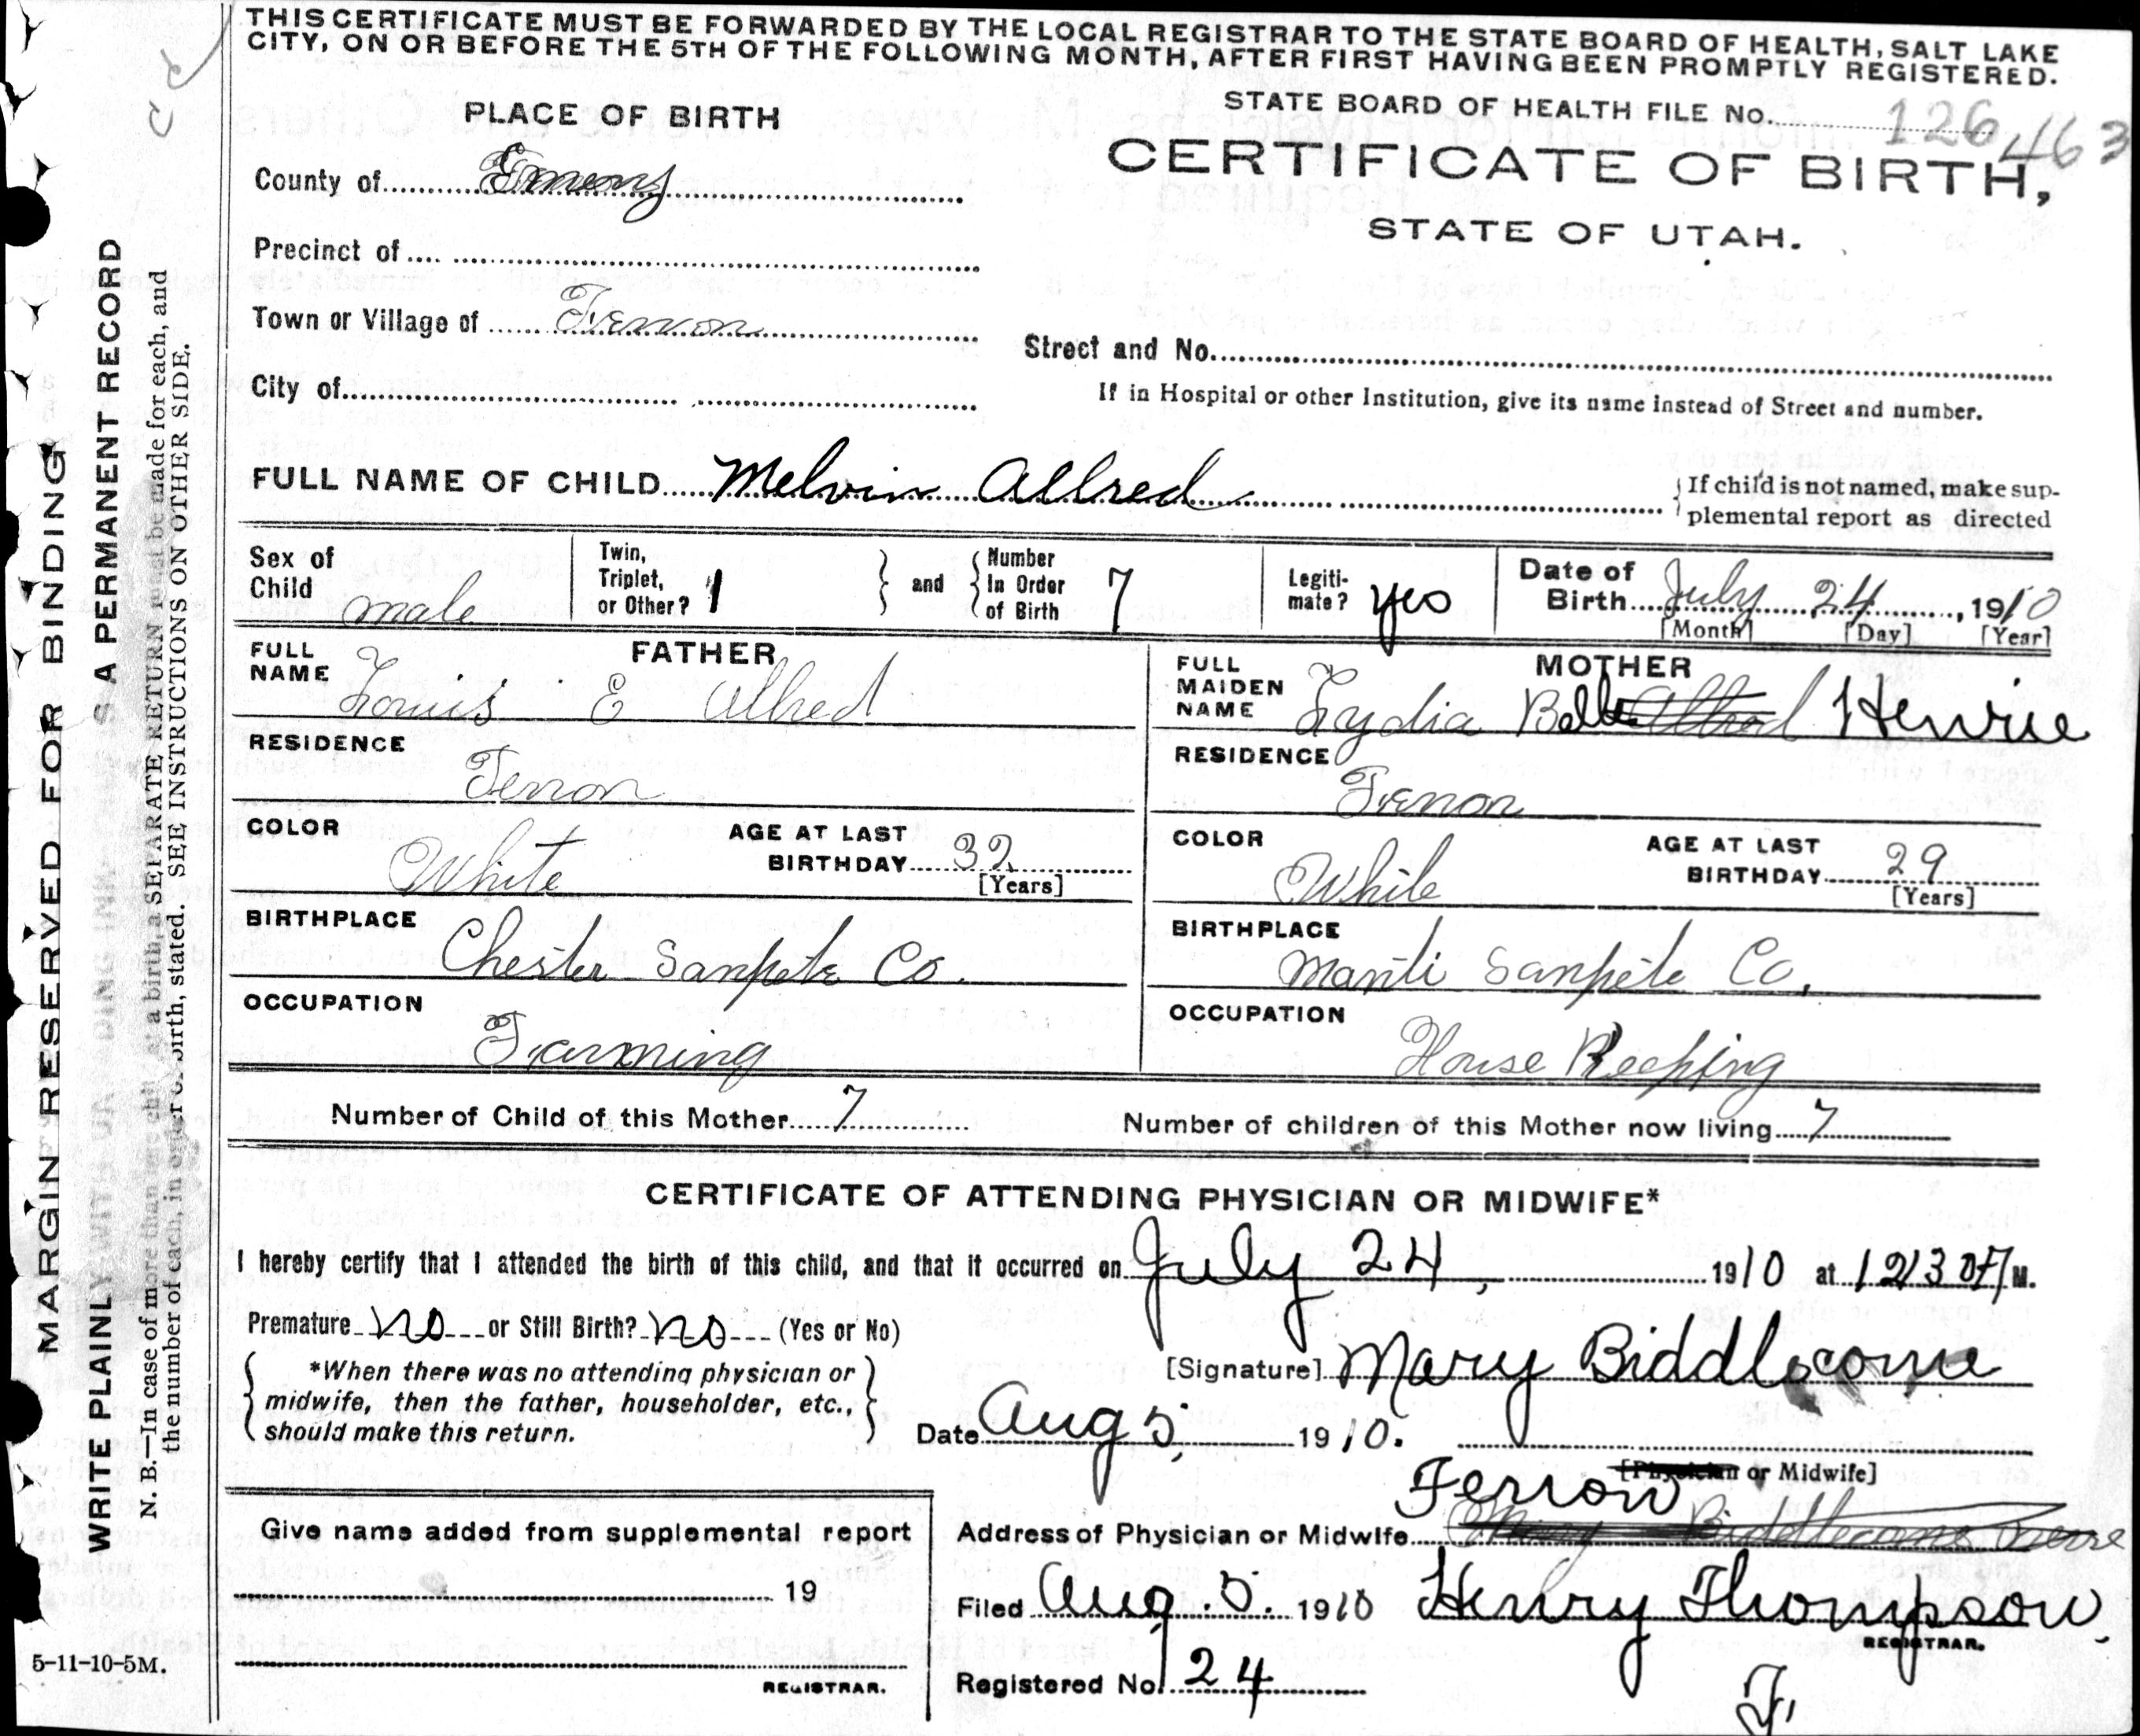 THIS CERTIFICATE MUST BE FORWARDED BY THE LOCAL REGISTRAR TO THE STATE BOARD OF HEALTH, SALT LAKE
CITY, ON OR BEFORE THE 5TH OF THE FOLLOWING MONTH, AFTER FIRST HAVING BEEN PROMPTLY REGISTERED.
PLACE OF BIRTH
STATE BOARD OF HEALTH FILE No. 126 463
CERTIFICATE OF BIRTH,
STATE OF UTAH.
County of Emery
Precinct of
Town or Village of Ferron
Street and No.
City of
If in Hospital or other Institution, give its name instead of Street and number.
FULL NAME OF CHILD Melvin Allred
If child is not named, make sup-
plemental report as directed
Sex of Child male
Twin, Triplet, or Other? 1
and
Number In Order of Birth 7
Legiti-mate? yes
Date of Birth July 24, 1910
[Month] [Day] [Year]
FATHER
FULL NAME Louis E Allred
RESIDENCE Ferron
COLOR White
AGE AT LAST BIRTHDAY 32 [Years]
BIRTHPLACE Chester Sanpete Co.
OCCUPATION Farming
MOTHER
FULL MAIDEN NAME Lydia Belle Allred Henrie
RESIDENCE Ferron
COLOR White
AGE AT LAST BIRTHDAY 29 [Years]
BIRTHPLACE Manti Sanpete Co,
OCCUPATION House Keeping
Number of Child of this Mother 7
Number of children of this Mother now living 7
CERTIFICATE OF ATTENDING PHYSICIAN OR MIDWIFE*
I hereby certify that I attended the birth of this child, and that it occurred on July 24, 1910 at 1230 M.
Premature no or Still Birth? no (Yes or No)
*When there was no attending physician or
midwife, then the father, householder, etc.,
should make this return.
[Signature] Mary Biddlecome
Date Aug 5, 1910.
[Physician or Midwife]
Ferron
Address of Physician or Midwife Mary Biddlecome
Give name added from supplemental report
19
REGISTRAR.
Filed Aug. 5. 1910 Henry Thompson.
REGISTRAR.
Registered No. 24
F,
5-11-10-5M.
MARGIN RESERVED FOR BINDING
WRITE PLAINLY WITH UNFADING INK—THIS IS A PERMANENT RECORD
N. B.—In case of more than one child at a birth, a SEPARATE RETURN must be made for each, and
the number of each, in order of birth, stated. SEE INSTRUCTIONS ON OTHER SIDE.